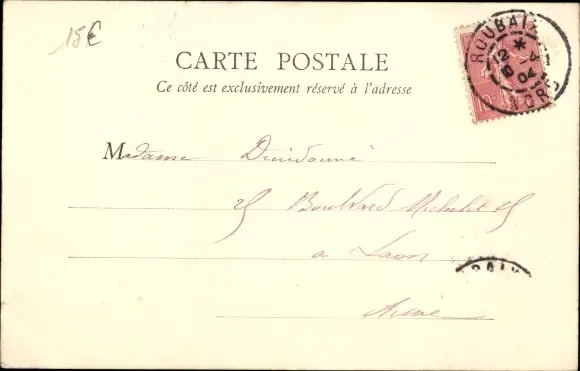 15€
CARTE POSTALE
Ce côté est exclusivement réservé à l'adresse
ROUBAIX
12
4-1
04
NORD
10
Madame Dieudonné
25 Boulevard Michelet 25
a Laon
Aisne